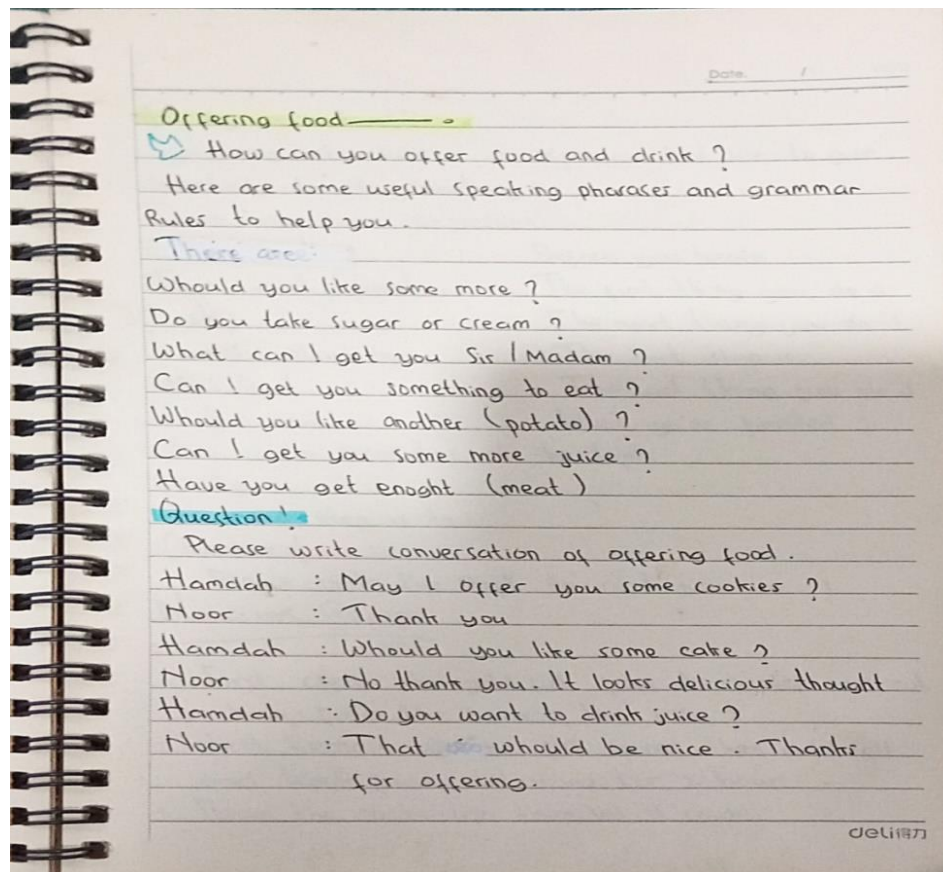 Date. /
Offering food
How can you offer food and drink ?
Here are some useful speaking pharases and grammar
Rules to help you .
There are :
Whould you like some more ?
Do you take sugar or cream ?
What can I get you Sir / Madam ?
Can I get you something to eat ?
Whould you like another (potato) ?
Can I get you some more juice ?
Have you get enoght (meat)
Question !
Please write conversation of offering food .
Hamdah : May I offer you some cookies ?
Noor : Thank you
Hamdah : Whould you like some cake ?
Noor : No thank you. It looks delicious thought
Hamdah : Do you want to drink juice ?
Noor : That whould be nice . Thanks
for offering.
deli得力